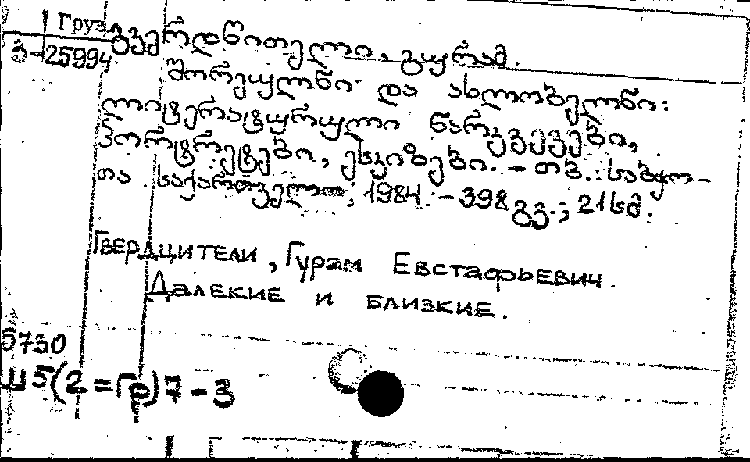 Груз
3-25994
გვერდწითელი, გურამ.
შორეულნი და ახლობელნი:
ლიტერატურული წარკვევები,
პორტრეტები, ესკიზები. – თბ.: საბჭო-
თა საქართველო, 1984. – 398 გვ.; 21 სმ.
Гвердцители, Гурам Евстафьевич.
Далекие и близкие.
5730
Ш5(2=Гр)7-3